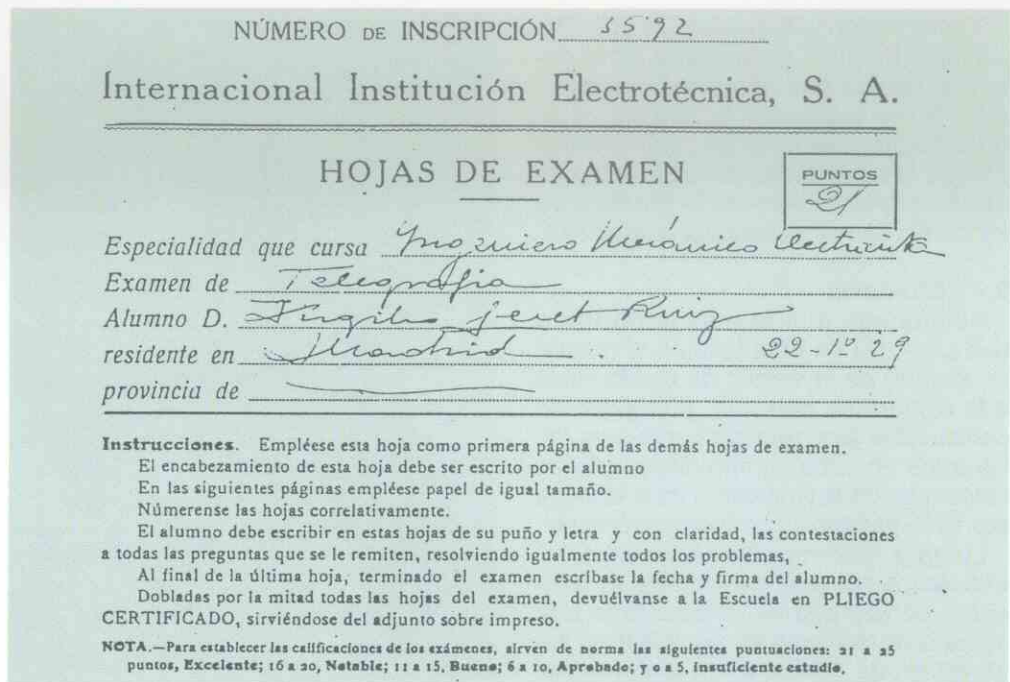 NÚMERO DE INSCRIPCIÓN 5592
Internacional Institución Electrotécnica, S. A.
HOJAS DE EXAMEN
PUNTOS
21
Especialidad que cursa Ingeniero Mecánico Electricista
Examen de Telegrafia
Alumno D. Virgilio Leret Ruiz
residente en Madrid 22-1º 29
provincia de
Instrucciones. Empléese esta hoja como primera página de las demás hojas de examen.
El encabezamiento de esta hoja debe ser escrito por el alumno
En las siguientes páginas empléese papel de igual tamaño.
Númerense las hojas correlativamente.
El alumno debe escribir en estas hojas de su puño y letra y con claridad, las contestaciones
a todas las preguntas que se le remiten, resolviendo igualmente todos los problemas,
Al final de la última hoja, terminado el examen escríbase la fecha y firma del alumno.
Dobladas por la mitad todas las hojas del examen, devuélvanse a la Escuela en PLIEGO
CERTIFICADO, sirviéndose del adjunto sobre impreso.
NOTA.—Para establecer las calificaciones de los exámenes, sirven de norma las siguientes puntuaciones: 21 a 25
puntos, Excelente; 16 a 20, Notable; 11 a 15, Bueno; 6 a 10, Aprobado; y 0 a 5, insuficiente estudio.